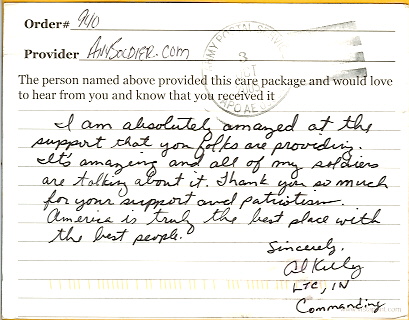 Order# 940
Provider ANYSOLDIER.COM
ARMY POSTAL SERVICE
APO AE
The person named above provided this care package and would love
to hear from you and know that you received it
I am absolutely amazed at the
support that you folks are providing.
It's amazing and all of my soldiers
are talking about it. Thank you so much
for your support and patriotism.
America is truly the best place with
the best people.
Sincerely,
Al Kelly
LTC, IN
Commanding